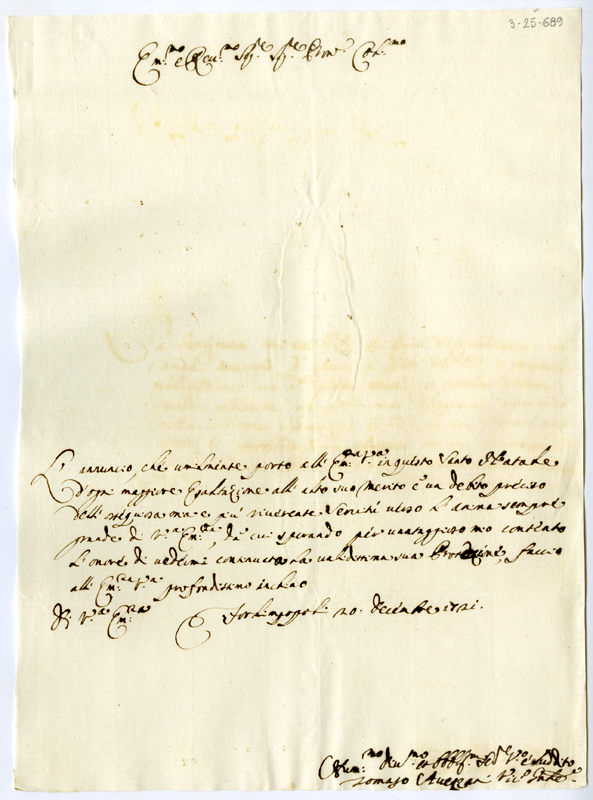 3-25-689
Em.mo e Reu.mo Sig.re Sig.re Pron.e Col.mo
L'annuncio, che umilmente porto all'Em.za V.a in questo Santo Natale
d'ogni maggiore Esaltazione all'alto suo merito è un debito preciso
dell' ma e più riuerente seruitù uerso l'anima sempre
grande di V.a Em.za da cui sperando per uantaggioso mio contento
l'onore di uedermi continuata la ualidissima sua Protezione, faccio
all'Em.za V.a profondissimo inchino
Di V.a Em.za
Forlimpopoli 20. decembre 1721.
Um.mo Deu.mo et Obbl.mo Ser.e e suddito
Tomaso